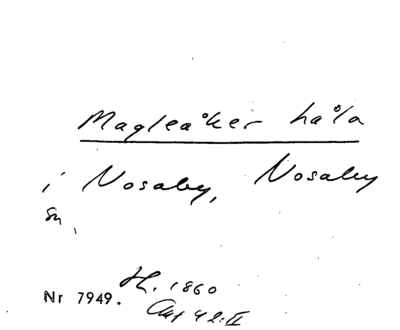 Magleåker håla
i Nosaby, Nosaby
sn,
H. 1860
Nr 7949.
42:II